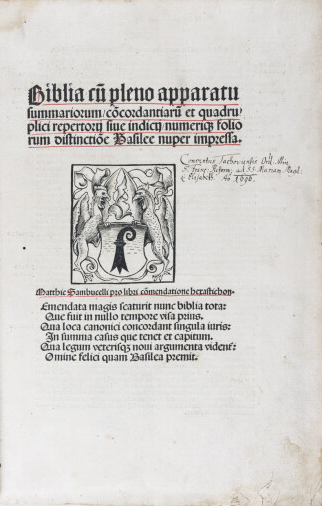 Biblia cū pleno apparatu
summariorum/cōcordantiarū et quadru/
plici repertorij siue indicij/numeriqʒ folio
rum distinctiōe Basilee nuper impressa.
Conventus Ord. Min.
S. Franc. Reform. ad SS. Mariam Magd.
Elisabeth. Ao 1696.
Matthie Sambucelli pro libri cōmendatione hexastichon.
Emendata magis scaturit nunc biblia tota:
Que fuit in nullo tempore visa prius.
Qua loca canonici concordant singula iuris:
In summa casus que tenet et capitum.
Qua legum veterisqʒ noui argumenta videnť:
Omine felici quam Basilea premit.